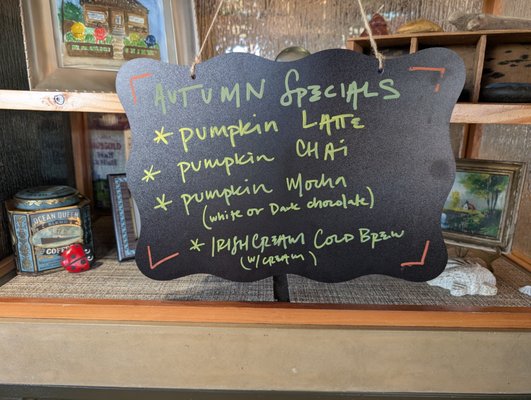 AUTUMN SPECIALS
* pumpkin LATTE
* pumpkin CHAi
* pumpkin Mocha
(white or Dark chocolate)
* IRISH CREAM COLD BREW
(w/ CREAM)
OCEAN QUEEN
COFFEE